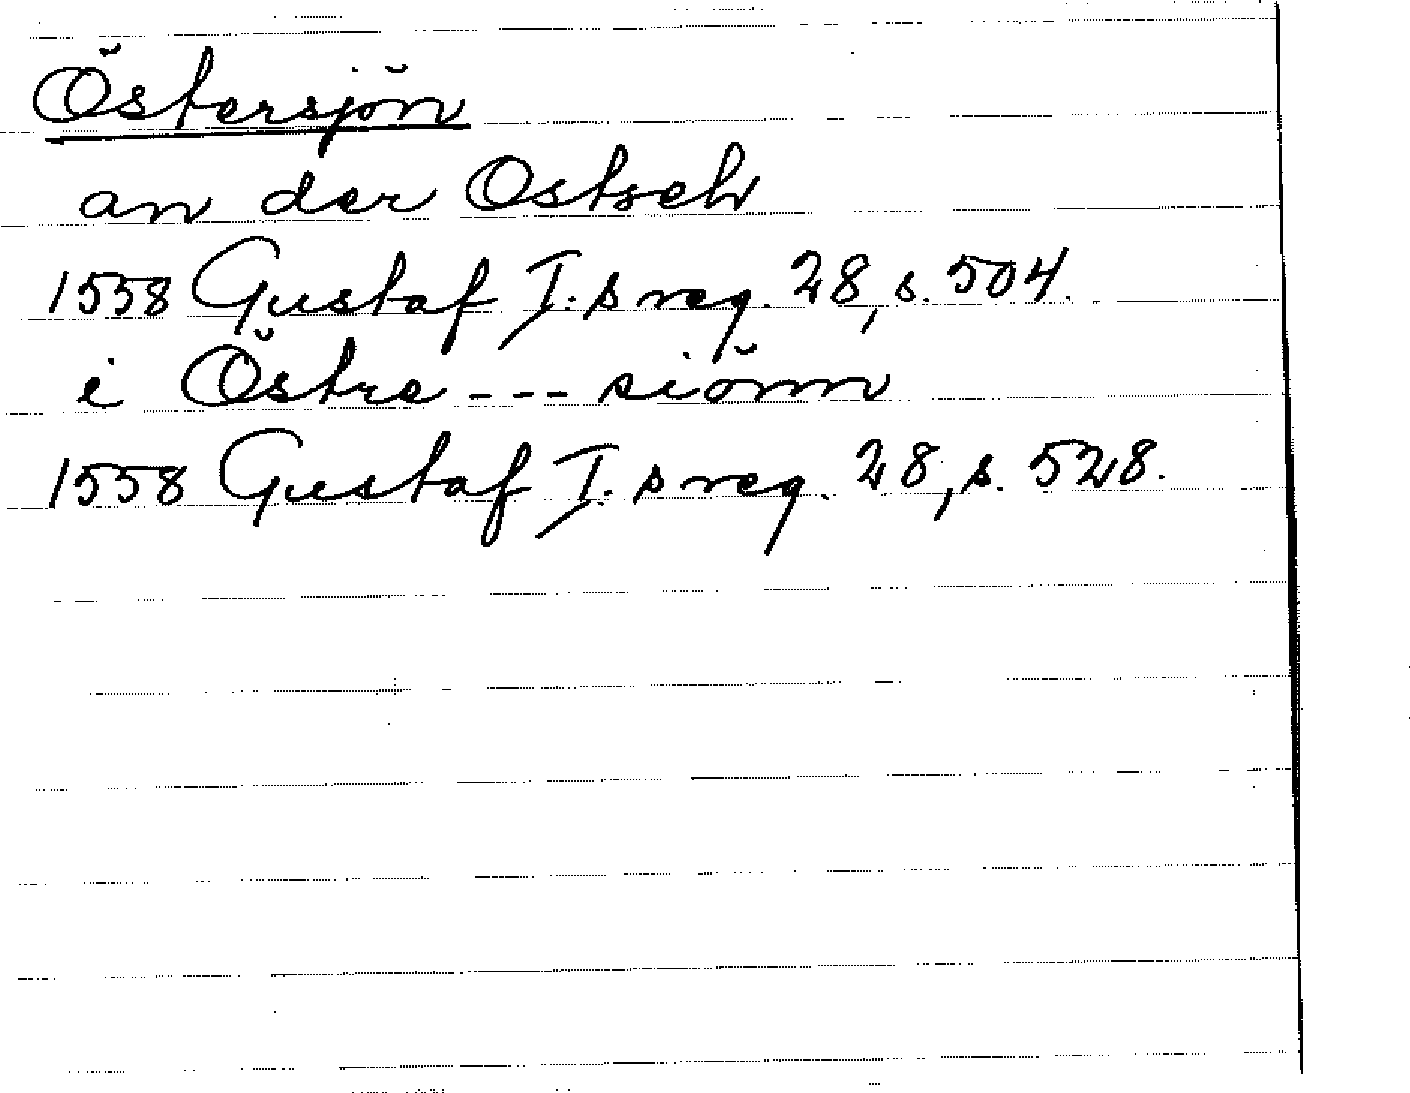 Östersjön
an der Ostseh
1558 Gustaf I:s reg. 28, s. 504.
i Östre --- siönn
1558 Gustaf I.s reg. 28, s. 528.